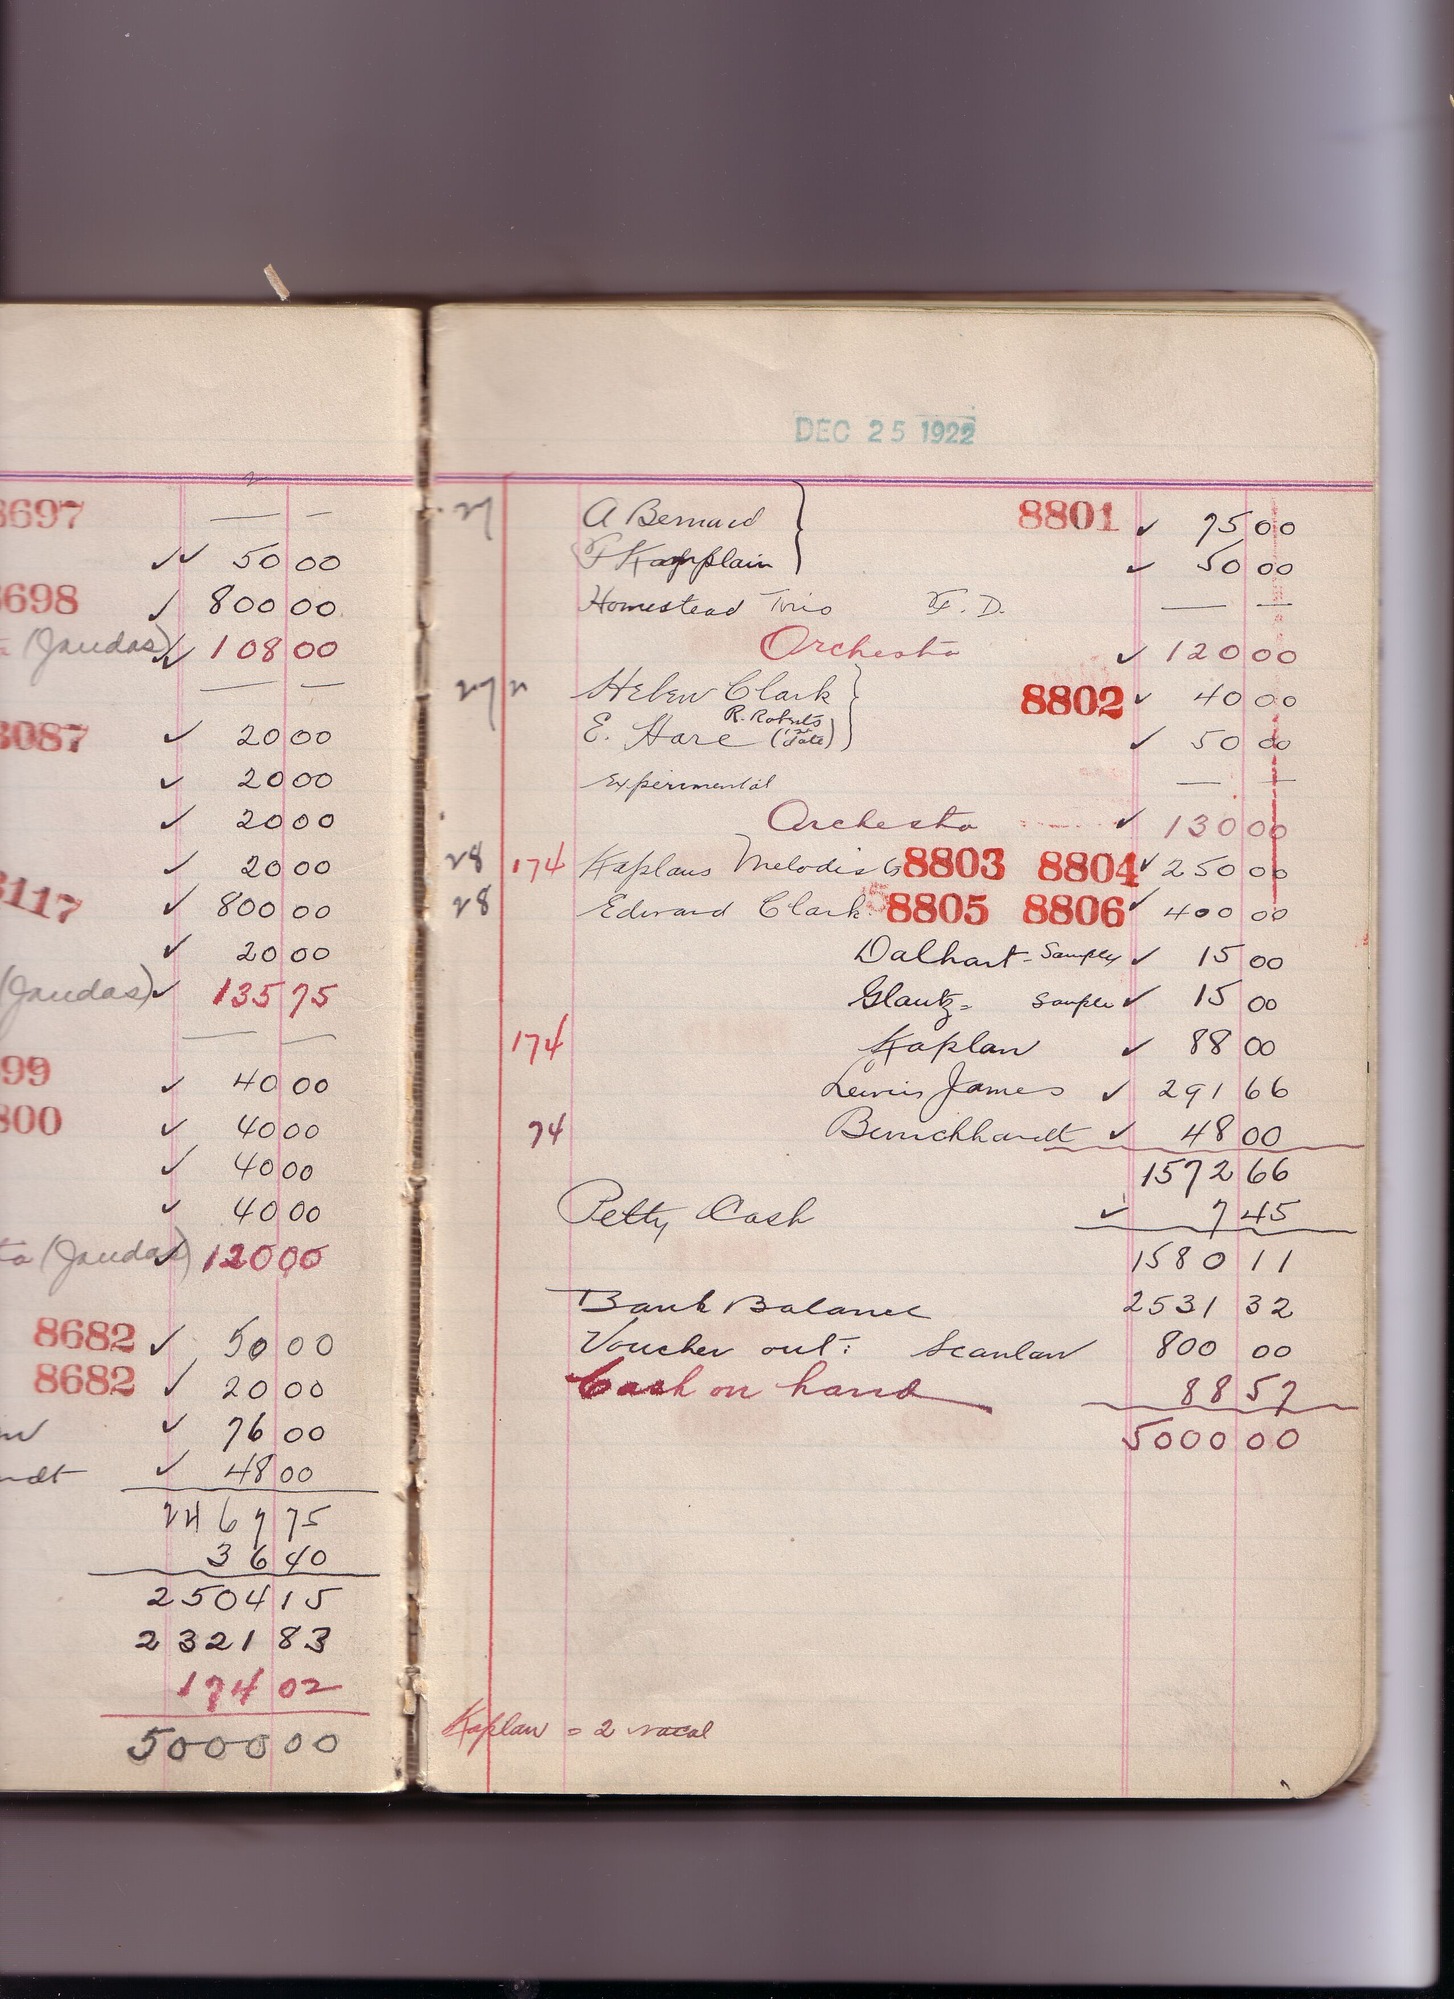 8697
50 00
8698 800 00
(Jaudas) 108 00
3087 20 00
20 00
20 00
20 00
3117 800 00
20 00
(Jaudas) 135 75
99 40 00
800 40 00
40 00
40 00
(Jaudas) 120 00
8682 50 00
8682 20 00
76 00
ndt 48 00
2467 75
36 40
2504 15
2321 83
174 02
5000 00
DEC 25 1922
27 A Bernard 8801 75 00
50 00
Homestead Trio F. D.
Orchestra 120 00
27 Helen Clark 8802 40 00
R. Roberts
E. Hare 50 00
Experimental
Orchestra 130 00
28 174 Kaplans Melodists 8803 8804 250 00
28 Edward Clark 8805 8806 400 00
Dalhart - Sample 15 00
Glantz - Sample 15 00
174 Kaplan 88 00
Lewis James 291 66
74 Burckhardt 48 00
1572 66
Petty Cash 7 45
1580 11
Bank Balance 2531 32
Voucher out: Scanlan 800 00
Cash on hand 88 57
5000 00
Kaplan = 2 vocal